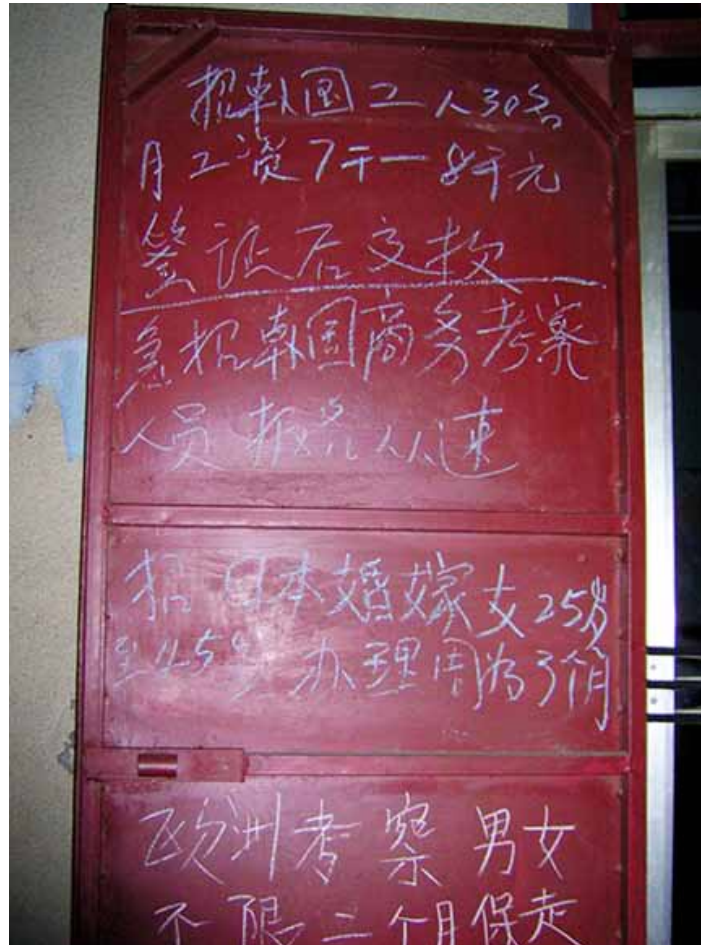 招韩国工人30名
月工资7千一8千元
签证后交款
急招韩国商务考察
人员报名从速
招日本婚嫁女25岁
至45岁办理周为3个月
欧洲考察男女
不限二个月保走